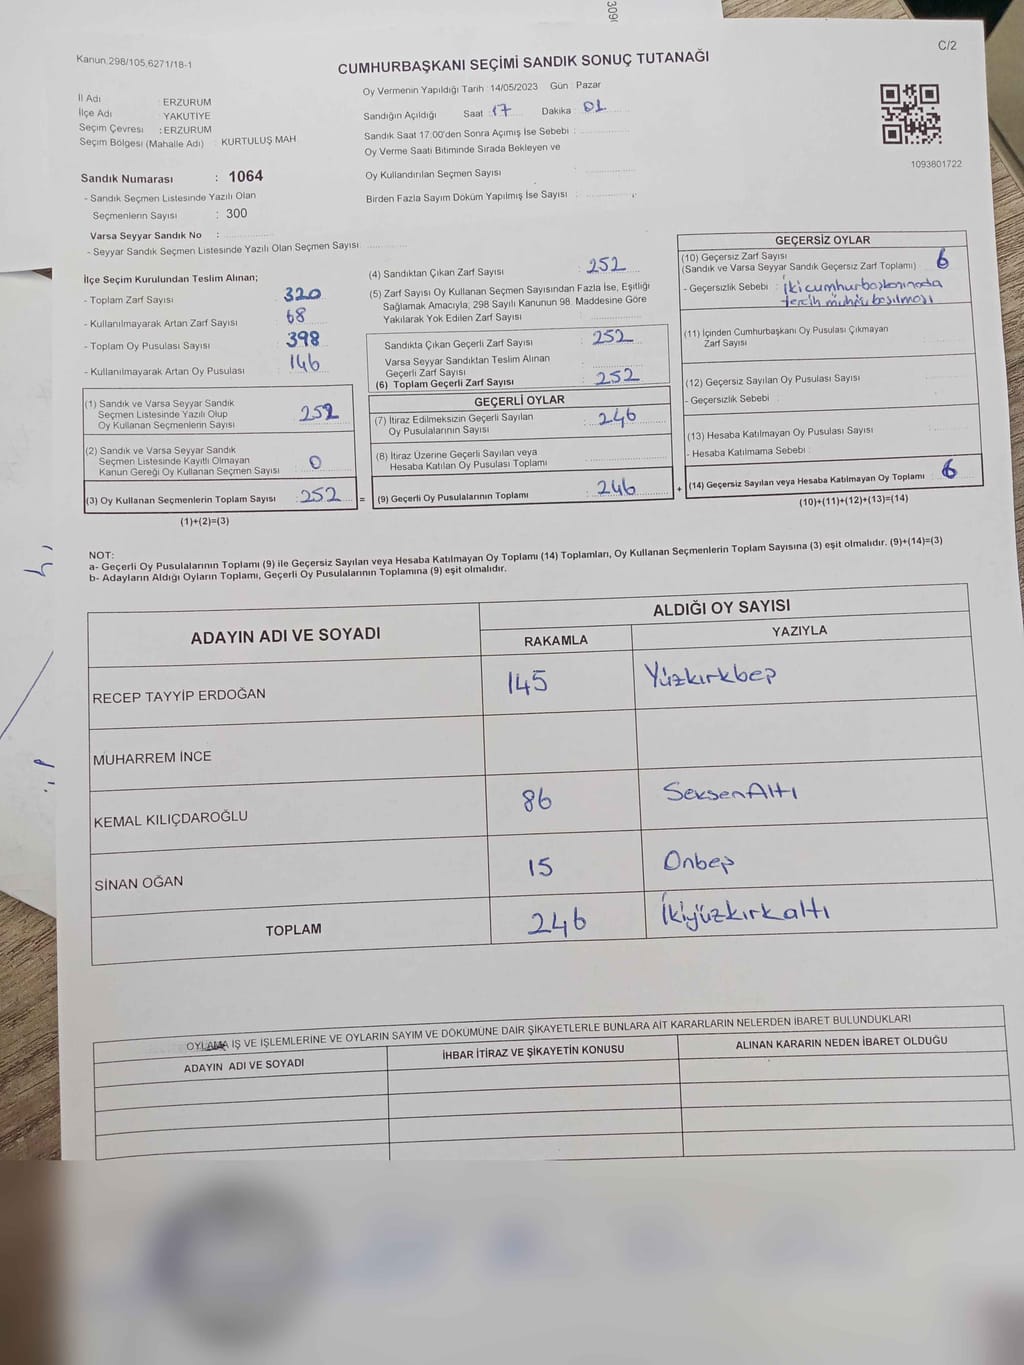 3090
Kanun.298/105,6271/18-1
CUMHURBAŞKANI SEÇİMİ SANDIK SONUÇ TUTANAĞI
C/2
İl Adı : ERZURUM
İlçe Adı : YAKUTİYE
Seçim Çevresi : ERZURUM
Seçim Bölgesi (Mahalle Adı) : KURTULUŞ MAH
Sandık Numarası : 1064
- Sandık Seçmen Listesinde Yazılı Olan
Seçmenlerin Sayısı : 300
Varsa Seyyar Sandık No :
- Seyyar Sandık Seçmen Listesinde Yazılı Olan Seçmen Sayısı
Oy Vermenin Yapıldığı Tarih : 14/05/2023 Gün : Pazar
Sandığın Açıldığı Saat : 17 Dakika : 01
Sandık Saat 17:00'den Sonra Açımış İse Sebebi :
Oy Verme Saati Bitiminde Sırada Bekleyen ve
Oy Kullandırılan Seçmen Sayısı :
Birden Fazla Sayım Döküm Yapılmış İse Sayısı :
1093801722
İlçe Seçim Kurulundan Teslim Alınan;
- Toplam Zarf Sayısı : 320
- Kullanılmayarak Artan Zarf Sayısı : 68
- Toplam Oy Pusulası Sayısı : 398
- Kullanılmayarak Artan Oy Pusulası : 146
(1) Sandık ve Varsa Seyyar Sandık
Seçmen Listesinde Yazılı Olup
Oy Kullanan Seçmenlerin Sayısı : 252
(2) Sandık ve Varsa Seyyar Sandık
Seçmen Listesinde Kayıtlı Olmayan
Kanun Gereği Oy Kullanan Seçmen Sayısı : 0
(3) Oy Kullanan Seçmenlerin Toplam Sayısı : 252 =
(1)+(2)=(3)
(4) Sandıktan Çıkan Zarf Sayısı : 252
(5) Zarf Sayısı Oy Kullanan Seçmen Sayısından Fazla İse, Eşitliği
Sağlamak Amacıyla; 298 Sayılı Kanunun 98. Maddesine Göre
Yakılarak Yok Edilen Zarf Sayısı :
Sandıkta Çıkan Geçerli Zarf Sayısı : 252
Varsa Seyyar Sandıktan Teslim Alınan
Geçerli Zarf Sayısı :
(6) Toplam Geçerli Zarf Sayısı : 252
GEÇERLİ OYLAR
(7) İtiraz Edilmeksizin Geçerli Sayılan
Oy Pusulalarının Sayısı : 246
(8) İtiraz Üzerine Geçerli Sayılan veya
Hesaba Katılan Oy Pusulası Toplamı :
(9) Geçerli Oy Pusulalarının Toplamı : 246 +
GEÇERSİZ OYLAR
(10) Geçersiz Zarf Sayısı
(Sandık ve Varsa Seyyar Sandık Geçersiz Zarf Toplamı) : 6
- Geçersizlik Sebebi : İki cumhurbaşkanınada
tercih mührü basılması
(11) İçinden Cumhurbaşkanı Oy Pusulası Çıkmayan
Zarf Sayısı
(12) Geçersiz Sayılan Oy Pusulası Sayısı :
- Geçersizlik Sebebi :
(13) Hesaba Katılmayan Oy Pusulası Sayısı :
- Hesaba Katılmama Sebebi :
(14) Geçersiz Sayılan veya Hesaba Katılmayan Oy Toplamı : 6
(10)+(11)+(12)+(13)=(14)
NOT:
a- Geçerli Oy Pusulalarının Toplamı (9) ile Geçersiz Sayılan veya Hesaba Katılmayan Oy Toplamı (14) Toplamları, Oy Kullanan Seçmenlerin Toplam Sayısına (3) eşit olmalıdır. (9)+(14)=(3)
b- Adayların Aldığı Oyların Toplamı, Geçerli Oy Pusulalarının Toplamına (9) eşit olmalıdır.
ADAYIN ADI VE SOYADI
ALDIĞI OY SAYISI
RAKAMLA YAZIYLA
RECEP TAYYİP ERDOĞAN 145 Yüzkırkbeş
MUHARREM İNCE
KEMAL KILIÇDAROĞLU 86 SeksenAltı
SİNAN OĞAN 15 Onbeş
TOPLAM 246 İkiyüzkırkaltı
OYLAMA İŞ VE İŞLEMLERİNE VE OYLARIN SAYIM VE DÖKÜMÜNE DAİR ŞİKAYETLERLE BUNLARA AİT KARARLARIN NELERDEN İBARET BULUNDUKLARI
ADAYIN ADI VE SOYADI İHBAR İTİRAZ VE ŞİKAYETİN KONUSU ALINAN KARARIN NEDEN İBARET OLDUĞU